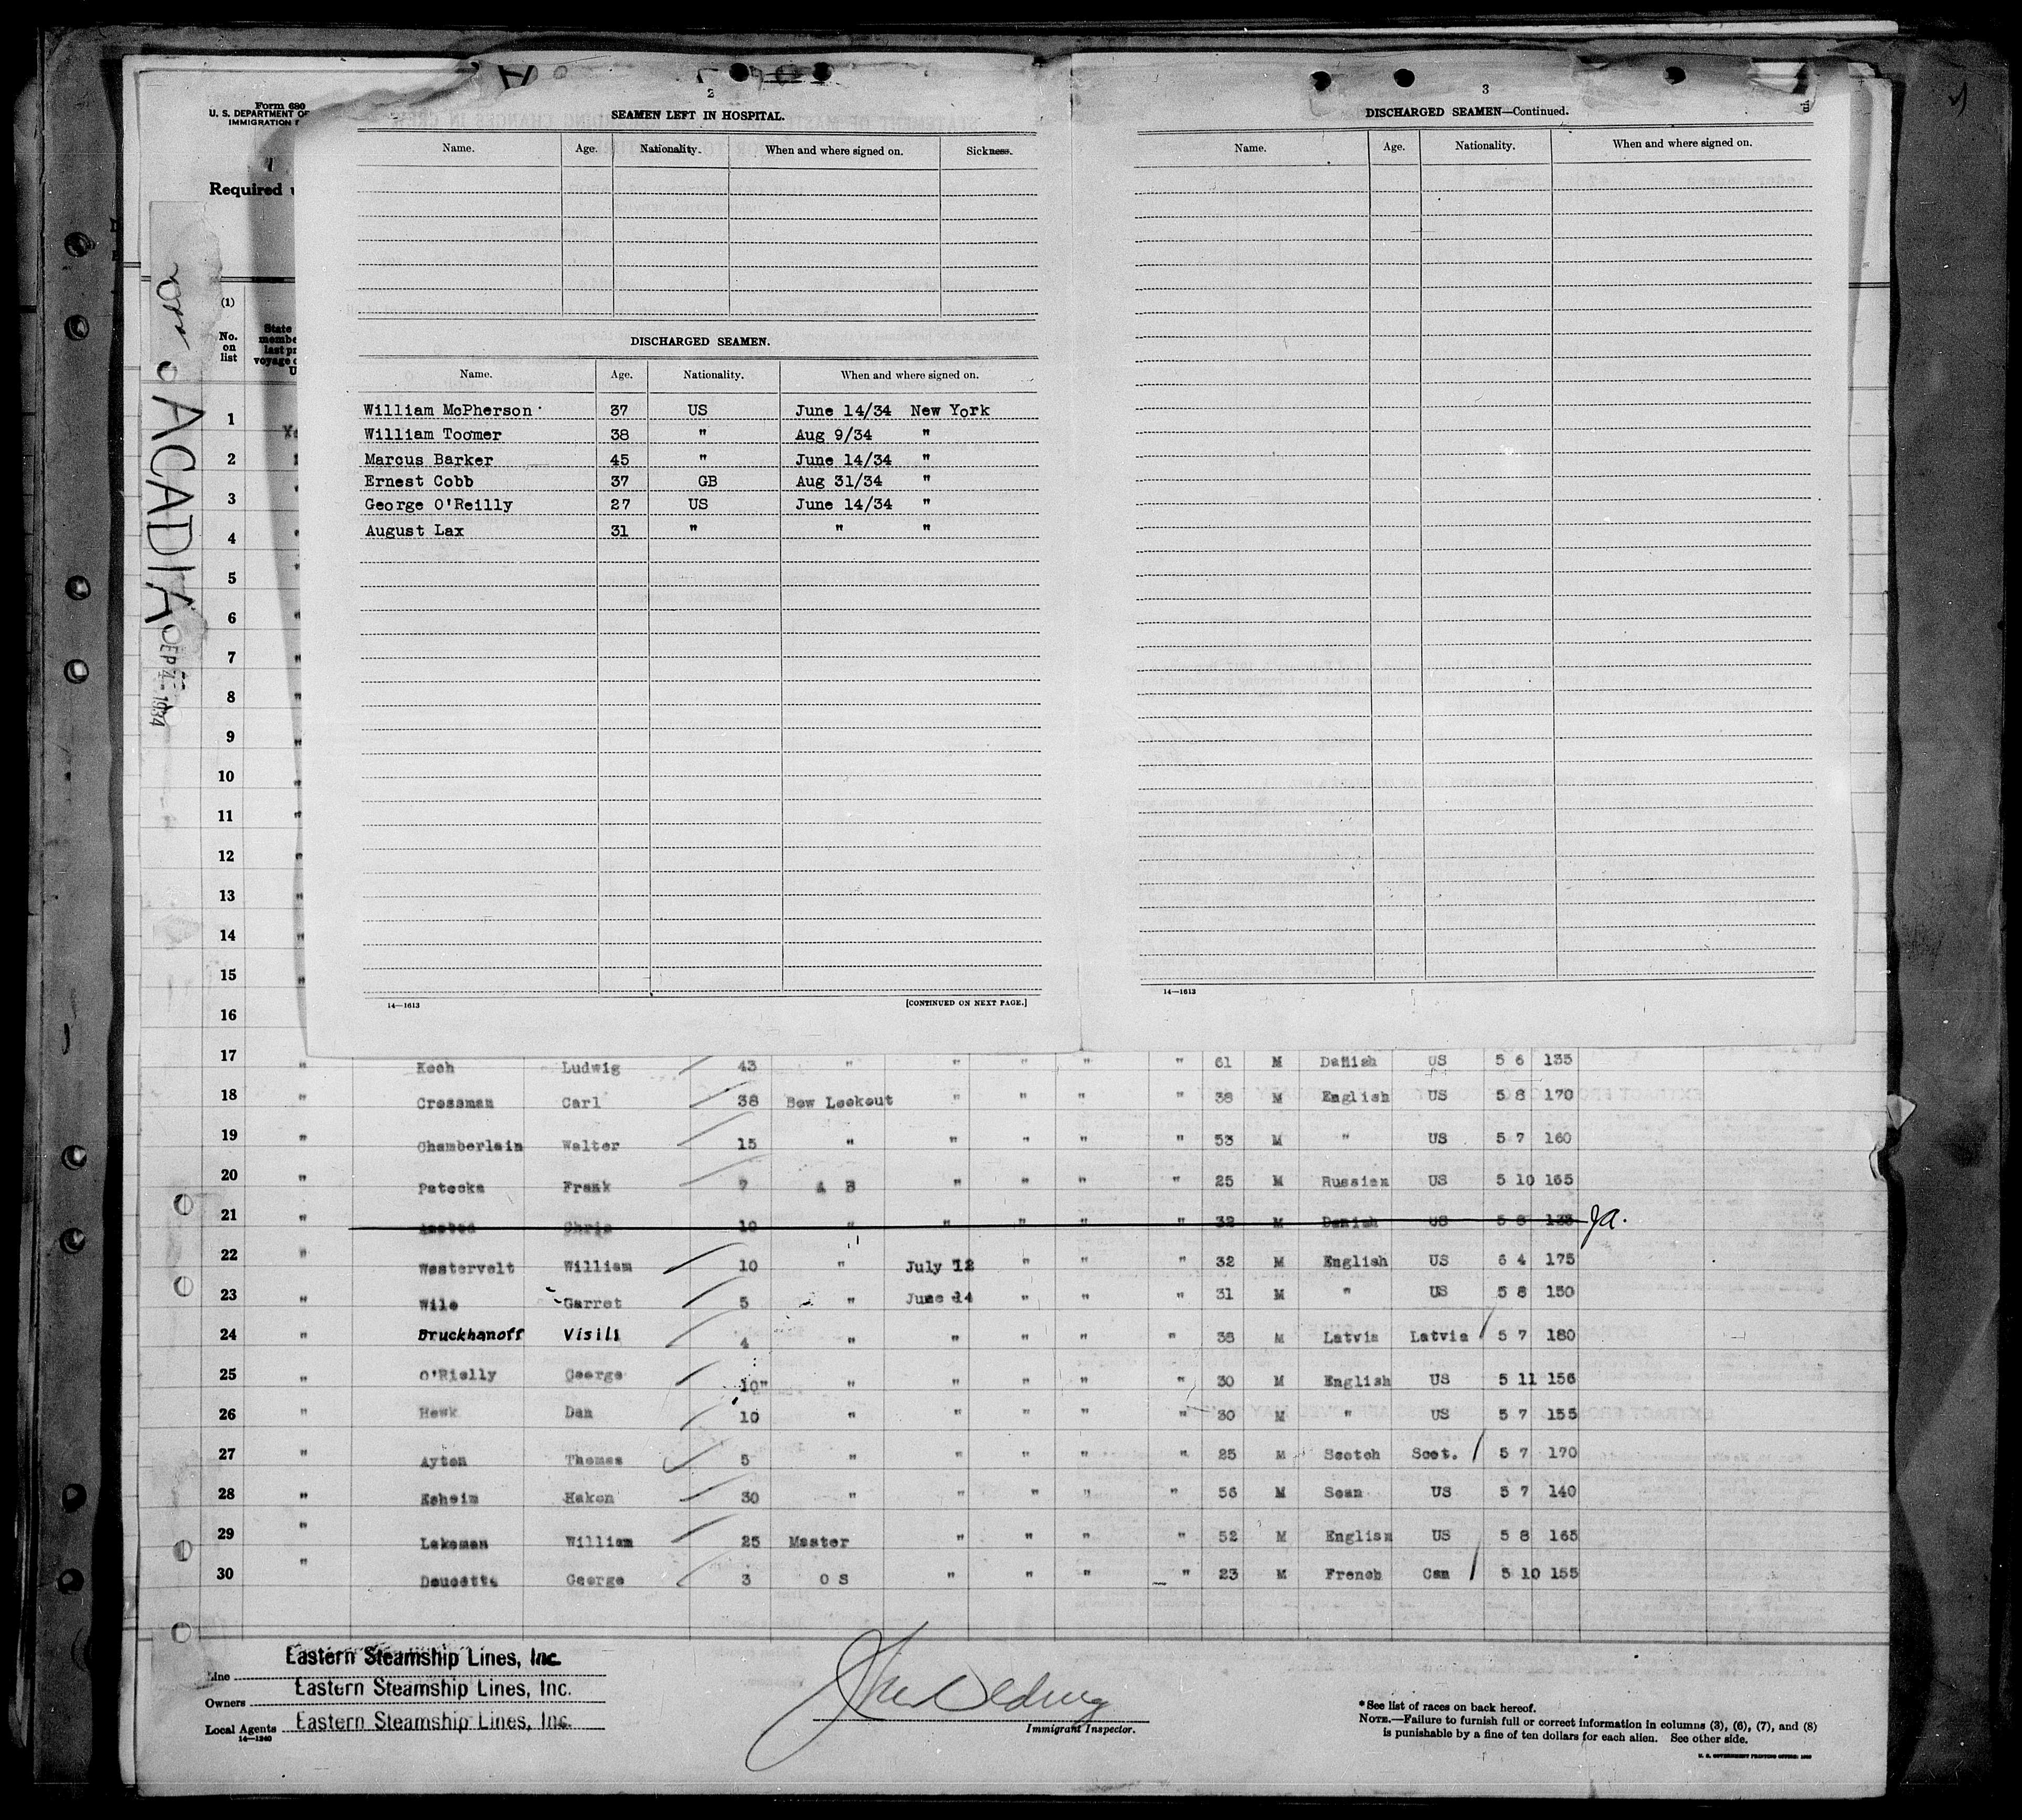 Form 680
U. S. DEPARTMENT OF
IMMIGRATION
Required
ACADIA
1934
(1)
No. on list
State
membe
last pr
voyage
2
SEAMEN LEFT IN HOSPITAL.
Name. Age. Nationality. When and where signed on. Sickness.
DISCHARGED SEAMEN.
Name. Age. Nationality. When and where signed on.
William McPherson 37 US June 14/34 New York
William Toomer 38 " Aug 9/34 "
Marcus Barker 45 " June 14/34 "
Ernest Cobb 37 GB Aug 31/34 "
George O'Reilly 27 US June 14/34 "
August Lax 31 " " "
14—1613
[CONTINUED ON NEXT PAGE.]
3
DISCHARGED SEAMEN—Continued.
Name. Age. Nationality. When and where signed on.
14—1613
1
2
3
4
5
6
7
8
9
10
11
12
13
14
15
16
17 " Koch Ludwig 43 " " " " " 61 M Danish US 5 6 135
18 " Crossman Carl 38 Bow Lookout " " " " 38 M English US 5 8 170
19 " Chamberlain Walter 15 " " " " " 53 M " US 5 7 160
20 " Patocka Frank 7 A B " " " " 25 M Russian US 5 10 165
21 " Chris 10 " " " " " 32 M Danish US 5 8 JA.
22 " Westervelt William 10 " July 12 " " " 32 M English US 6 4 175
23 " Wile Garret 5 " June 14 " " " 31 M " US 5 8 150
24 " Bruckhanoff Visili 4 " " " " " 38 M Latvia Latvia 5 7 180
25 " O'Rielly George 10" " " " " " 30 M English US 5 11 156
26 " Hawk Dan 10 " " " " " 30 M " US 5 7 155
27 " Ayton Thomas 5 " " " " " 25 M Scotch Scot. 5 7 170
28 " Esheim Hakon 30 " " " " " 56 M Scan US 5 7 140
29 " Lakeman William 25 Master " " " " 52 M English US 5 8 165
30 " Doucette George 3 O S " " " " 23 M French Can 5 10 155
Line Eastern Steamship Lines, Inc.
Owners Eastern Steamship Lines, Inc.
Local Agents Eastern Steamship Lines, Inc.
14—1240
Immigrant Inspector.
*See list of races on back hereof.
NOTE.—Failure to furnish full or correct information in columns (3), (6), (7), and (8)
is punishable by a fine of ten dollars for each alien. See other side.
U. S. GOVERNMENT PRINTING OFFICE